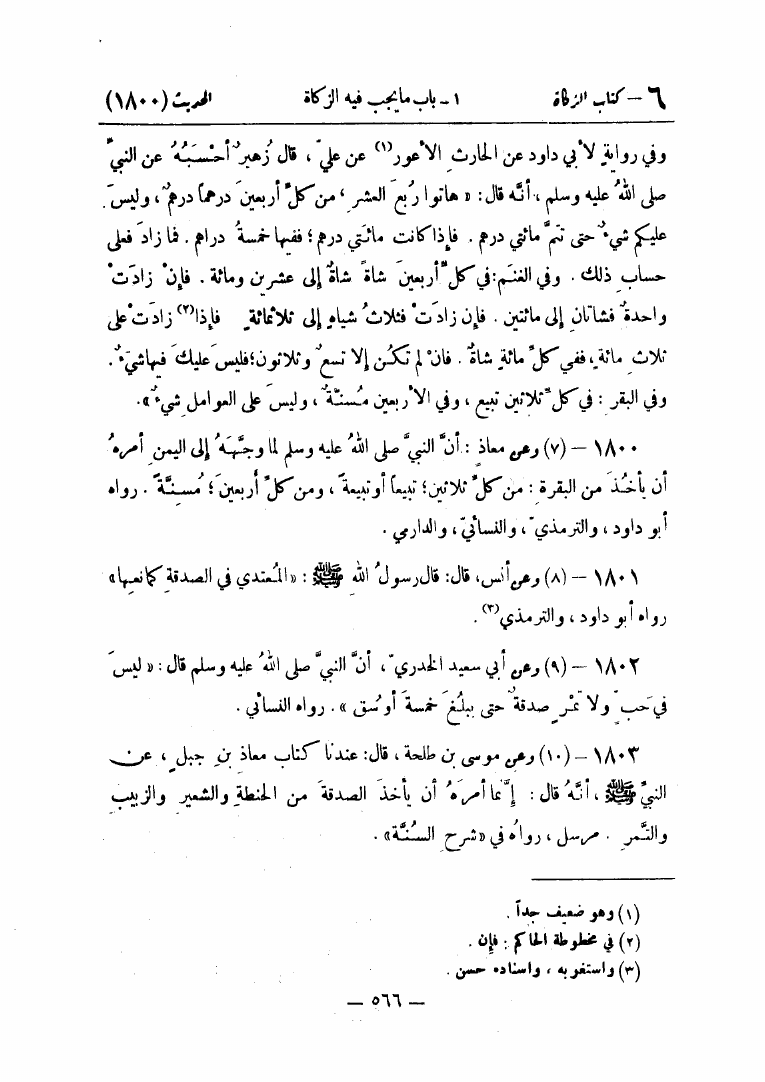 ٦ – كتاب الزكاة ١ - باب مايجب فيه الزكاة الحديث (١٨٠٠)
وفي روايةٍ لأبي داود عن الحارث الأعور(١) عن عليّ ، قال زُهيرٌ أحْسَبُهُ عن النبيِّ
صلى اللهُ عليه وسلم ، أنَّه قال : « هاتوا رُبعَ العشر ، من كلِّ أربعينَ درهماً درهمٌ ، وليسَ
عليكم شيءٌ حتى تتمَّ مائتي درهم . فإذا كانت مائتي درهم ؛ ففيها خمسةُ دراهم . فما زادَ فعلى
حساب ذلك . وفي الغنَم : في كلِّ أربعينَ شاةً شاةٌ إلى عشرين ومائة . فإنْ زادَتْ
واحدةٌ فشاتانِ إلى مائتين . فإن زادَتْ فثلاثُ شياهٍ إلى ثلاثمائةٍ فإذا(٢) زادَتْ على
ثلاثِ مائةٍ ، ففي كلِّ مائةٍ شاةٌ . فانْ لم تكن إلا تسعٌ وثلاثون ؛ فليسَ عليكَ فيها شيءٌ .
وفي البقر : في كلِّ ثلاثين تبيع ، وفي الأربعين مُسنَّةٌ ، وليسَ على العوامل شيءٌ » .
١٨٠٠ – (٧) وعن معاذٍ : أنَّ النبيَّ صلى اللهُ عليه وسلم لما وجَّهَهُ إلى اليمنِ أمرهُ
أن يأخُذَ من البقرة : من كلِّ ثلاثين ؛ تبيعاً أو تبيعةً ، ومن كلِّ أربعينَ ؛ مُسنَّةً . رواه
أبو داود ، والترمذيّ ، والنسائيّ ، والدارمي .
١٨٠١ – (٨) وعن أنس ، قال : قال رسولُ اللهِ ﷺ : « المُعتدي في الصدقةِ كمانعِها »
رواه أبو داود ، والترمذي(٣) .
١٨٠٢ – (٩) وعن أبي سعيد الخدريّ ، أنَّ النبيَّ صلى اللهُ عليه وسلم قال : « ليسَ
في حَبٍّ ولا تمْرٍ صدقةٌ حتى يبلُغَ خمسةَ أوسُق » . رواه النسائي .
١٨٠٣ – (١٠) وعن موسى بن طلحة ، قال : عندنا كتاب معاذِ بنِ جبلٍ ، عن
النبيِّ ﷺ ، أنَّهُ قال : إنَّما أمرَهُ أن يأخذَ الصدقةَ من الحنطةِ والشعيرِ والزبيبِ
والتَّمرِ . مرسل ، رواهُ في « شرحِ السُنَّة » .
(١) وهو ضعيف جداً .
(٢) في مخطوطة الحاكم : فإن .
(٣) واستغربه ، واسناده حسن .
– ٥٦٦ –